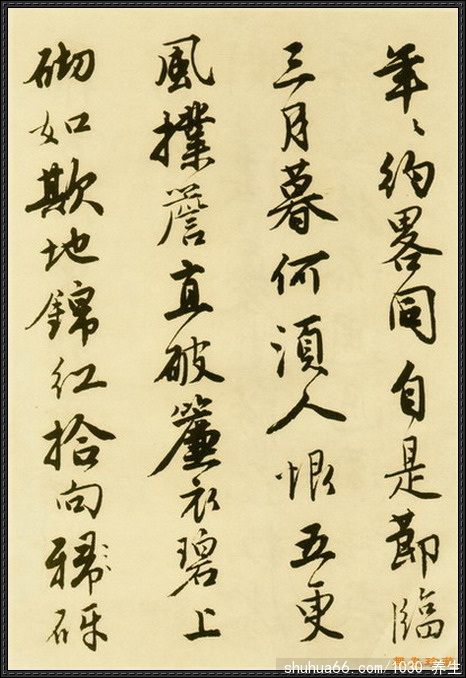 年〻約畧同自是節臨
三月暮何須人恨五更
風撲簷直破簾衣碧上
砌如欺地錦紅拾向砑
shuhua66.com/1030 养生